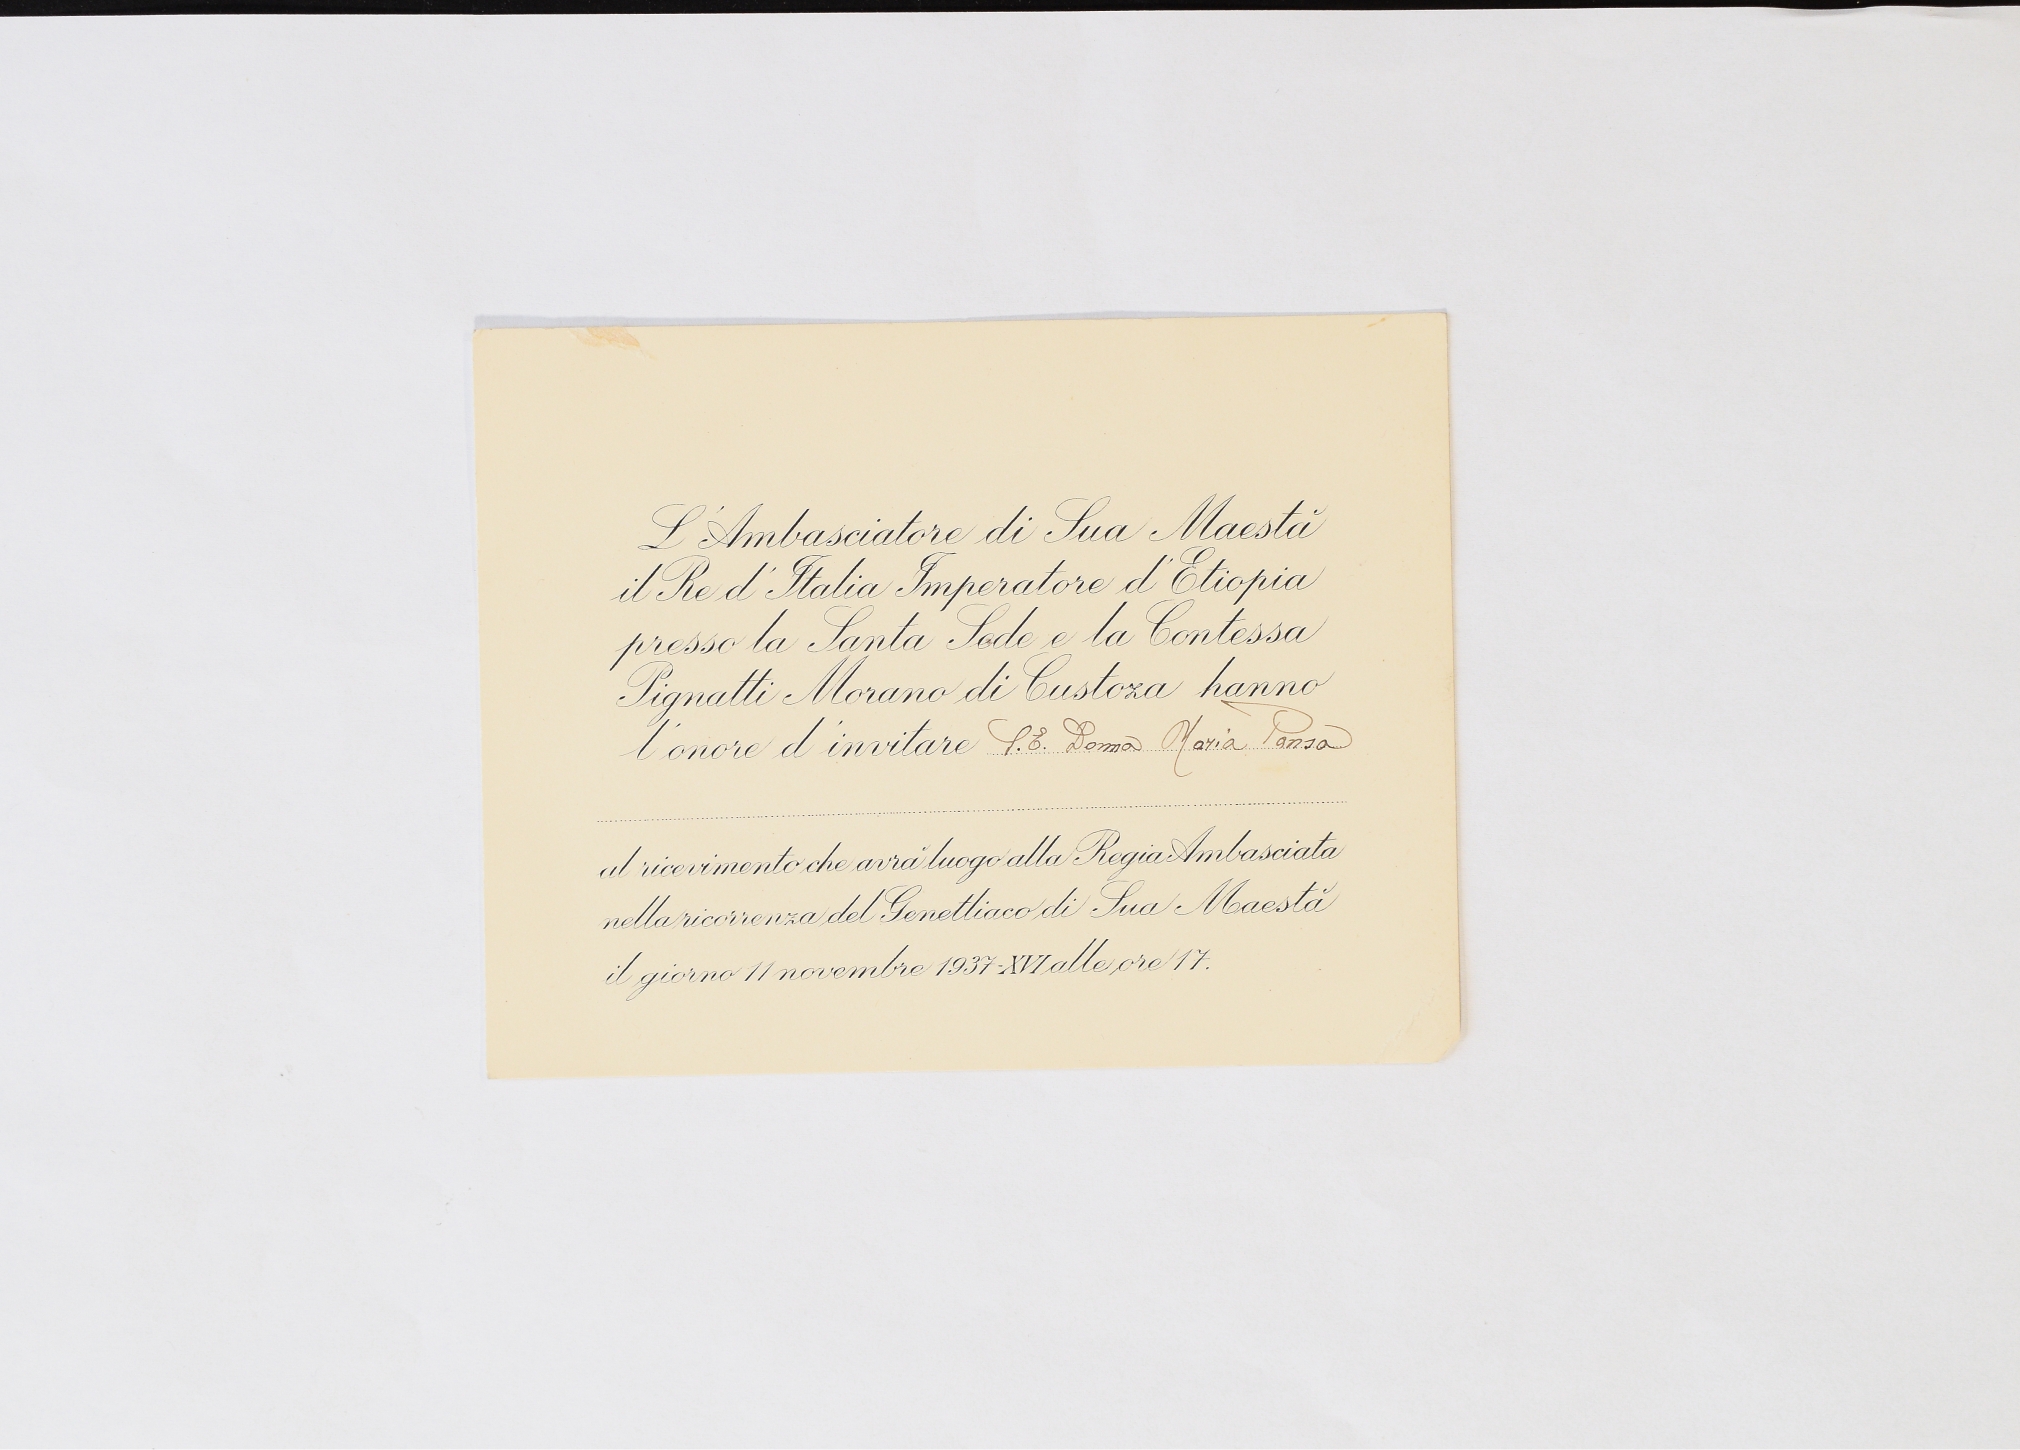 L'Ambasciatore di Sua Maestà
il Re d'Italia Imperatore d'Etiopia
presso la Santa Sede e la Contessa
Pignatti Morano di Custoza hanno
l'onore d'invitare S.E. Donna Maria Pansa
al ricevimento che avrà luogo alla Regia Ambasciata
nella ricorrenza del Genetliaco di Sua Maestà
il giorno 11 novembre 1937-XVI alle ore 17.